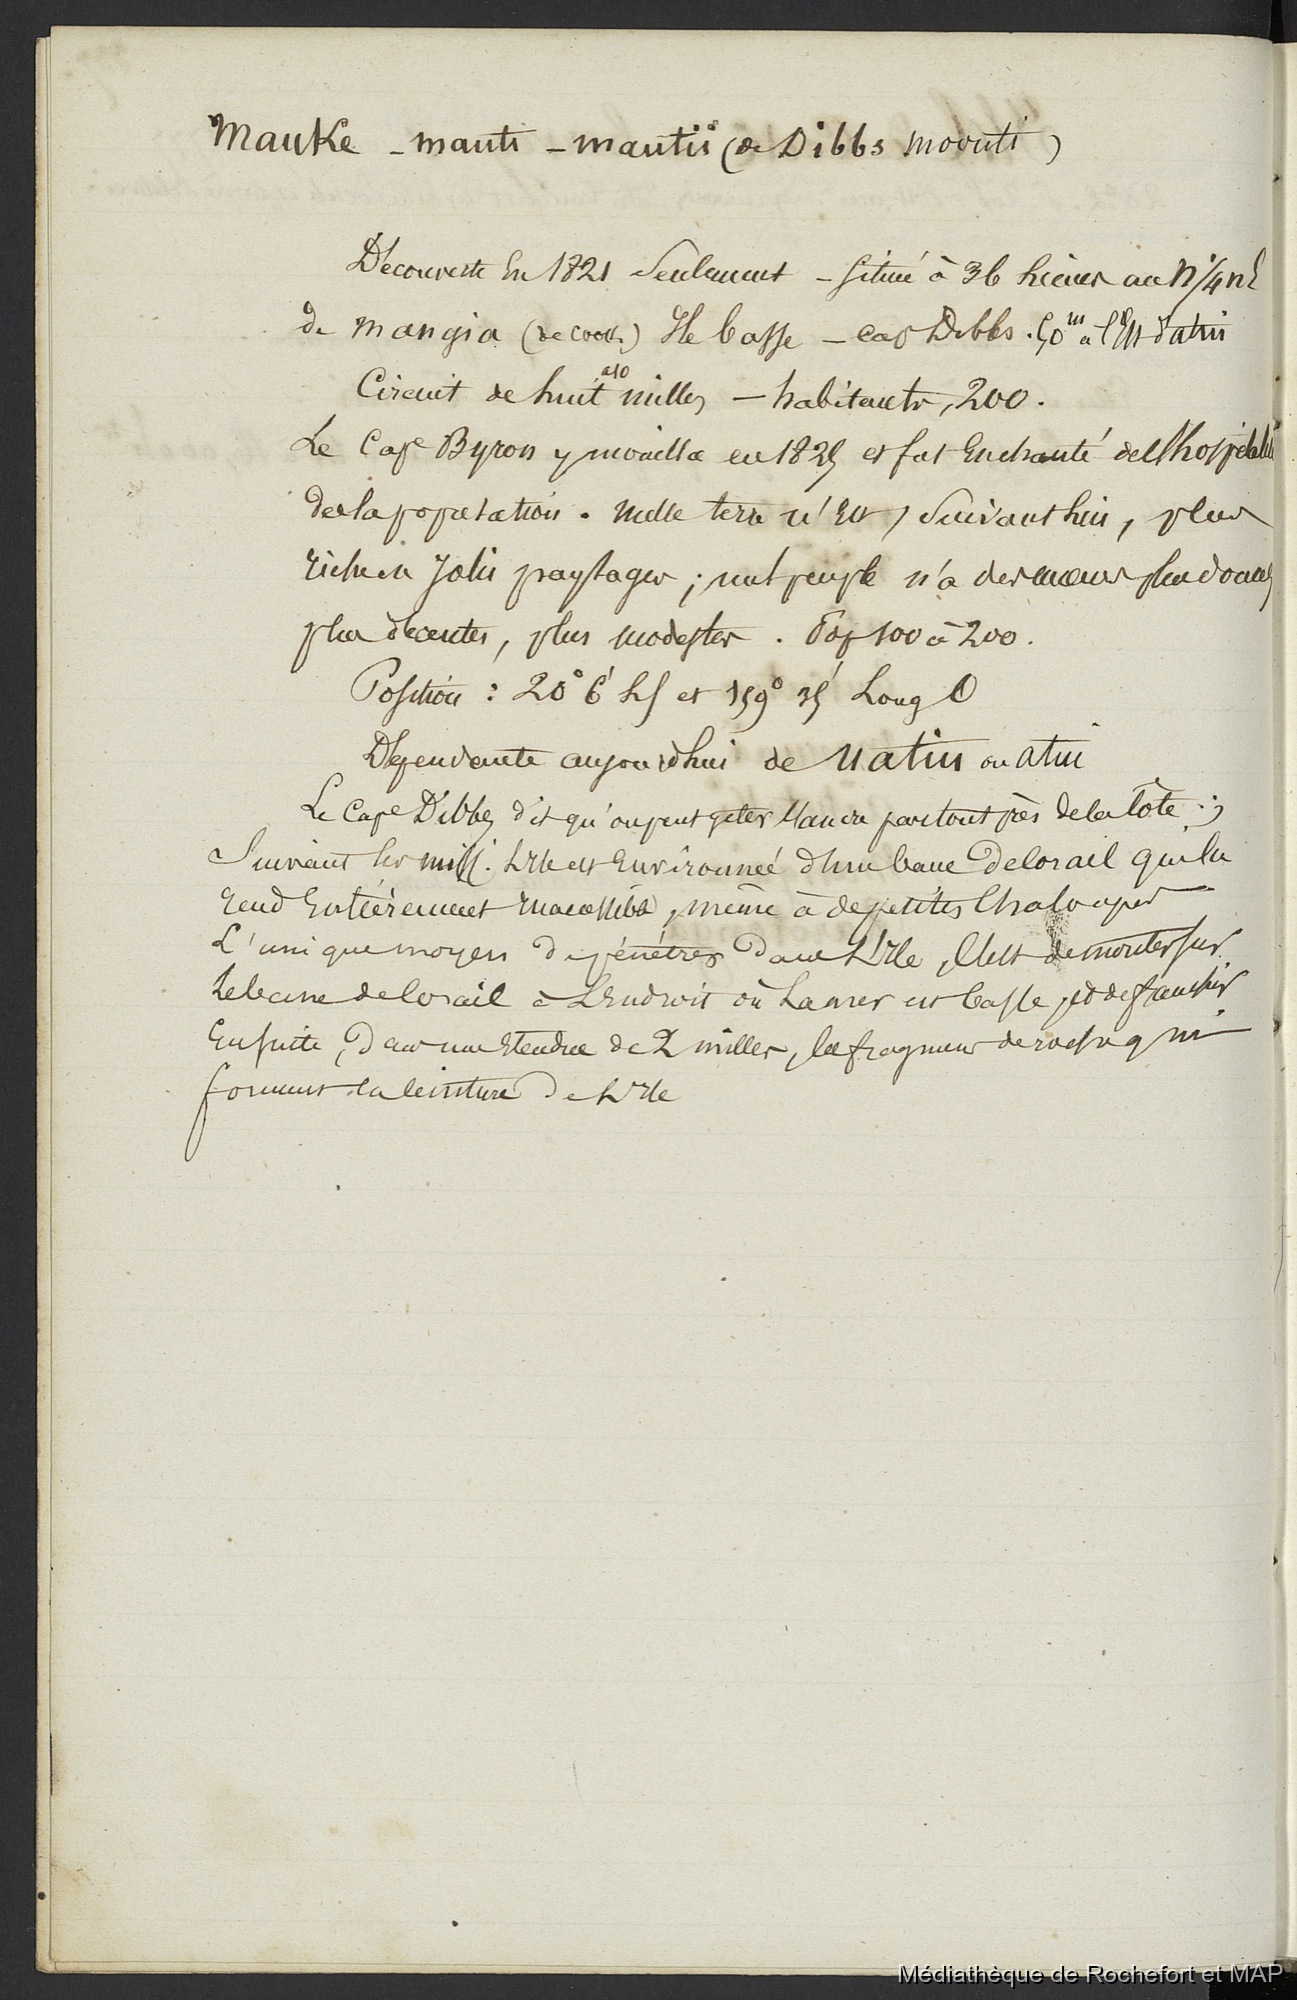 Mauke - mauti - mautii (de Dibbs Movuti)
Découverte En 1821 Seulement - Situé à 36 lieues au N 1/4 NE
de Mangia (de Cook) Ile basse - cap Dibbs. 50 m à l'E d'atiu
Circuit de huit à 10 milles - habitants, 200.
Le Cape Byron y mouilla en 1825 et fut Enchanté de l'hospitalité
de la population. Nulle terre n'Est, Suivant lui, plus
riche en Jolis paysages ; nul peuple n'a des mœurs plus douces
plus décentes, plus modestes. Pop 100 à 200.
Position : 20° 6' LS et 159° 35' Long O
Dépendante aujourdhui de Uatiu ou atiu
Le Cape Dibbs dit qu'on peut jeter l'ancre partout près de la Côte ;
Suivant les miss. L'Ile est Environnée d'un banc de Corail qui la
rend Entièrement Inaccessible, même à de petites Chaloupes
L'unique moyen de pénétrer dans L'Ile, C'est de monter sur
Le banc de Corail à L'Endroit où La mer est basse, et de franchir
Ensuite, dans une Etendue de 2 milles, les fragmens de roche qui
forment la Ceinture de L'Ile
Médiathèque de Rochefort et MAP